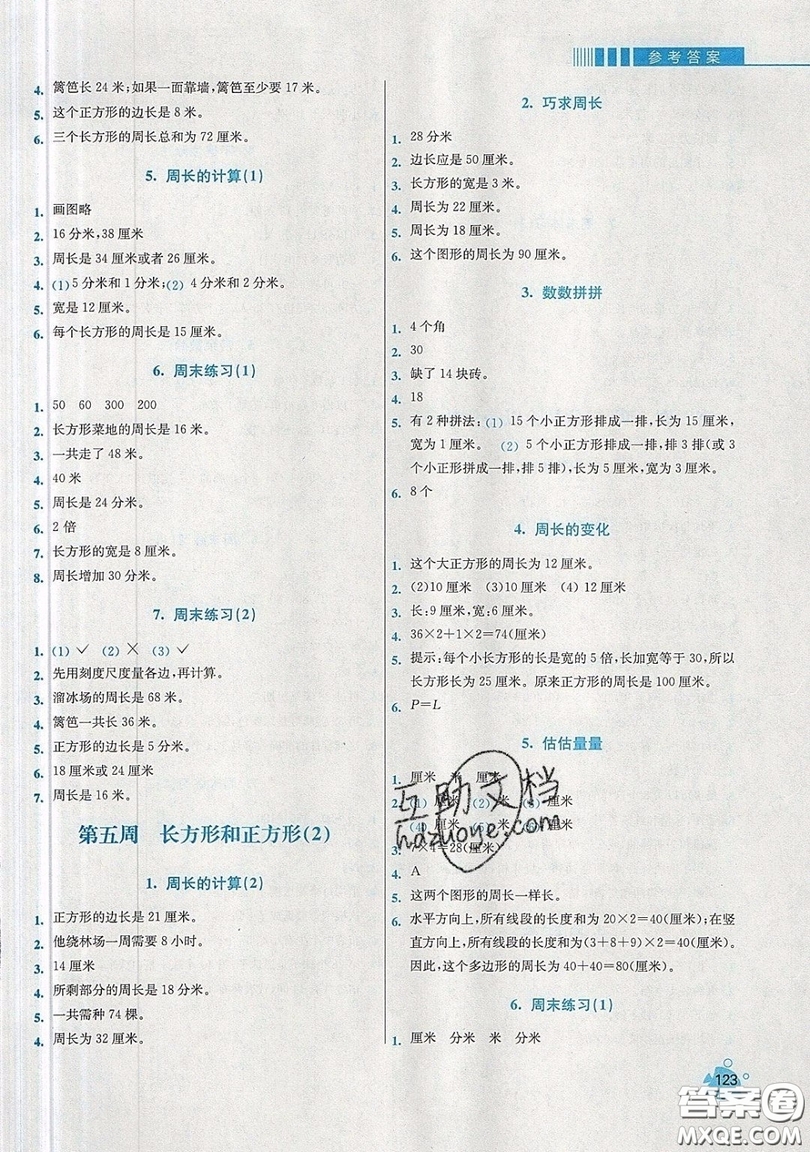 参考答案
4. 篱笆长 24 米;如果一面靠墙,篱笆至少要 17 米。
5. 这个正方形的边长是 8 米。
6. 三个长方形的周长总和为 72 厘米。
5. 周长的计算(1)
1. 画图略
2. 16 分米,38 厘米
3. 周长是 34 厘米或者 26 厘米。
4. (1) 5 分米和 1 分米;(2) 4 分米和 2 分米。
5. 宽是 12 厘米。
6. 每个长方形的周长是 15 厘米。
6. 周末练习(1)
1. 50 60 300 200
2. 长方形菜地的周长是 16 米。
3. 一共走了 48 米。
4. 40 米
5. 周长是 24 分米。
6. 2 倍
7. 长方形的宽是 8 厘米。
8. 周长增加 30 分米。
7. 周末练习(2)
1. (1) ✓ (2) × (3) ✓
2. 先用刻度尺度量各边,再计算。
3. 溜冰场的周长是 68 米。
4. 篱笆一共长 36 米。
5. 正方形的边长是 5 分米。
6. 18 厘米或 24 厘米
7. 周长是 16 米。
第五周 长方形和正方形(2)
1. 周长的计算(2)
1. 正方形的边长是 21 厘米。
2. 他绕林场一周需要 8 小时。
3. 14 厘米
4. 所剩部分的周长是 18 分米。
5. 一共需种 74 棵。
4. 周长为 32 厘米。
2. 巧求周长
1. 28 分米
2. 边长应是 50 厘米。
3. 长方形的宽是 3 米。
4. 周长为 22 厘米。
5. 周长为 18 厘米。
6. 这个图形的周长为 90 厘米。
3. 数数拼拼
1. 4 个角
2. 30
3. 缺了 14 块砖。
4. 18
5. 有 2 种拼法:(1) 15 个小正方形排成一排,长为 15 厘米,
宽为 1 厘米。 (2) 5 个小正方形排成一排,排 3 排(或 3
个小正形拼成一排,排 5 排),长为 5 厘米,宽为 3 厘米。
6. 8 个
4. 周长的变化
1. 这个大正方形的周长为 12 厘米。
2. (2)10 厘米 (3)10 厘米 (4) 12 厘米
3. 长:9 厘米,宽:6 厘米。
4. 36×2+1×2=74(厘米)
5. 提示:每个小长方形的长是宽的 5 倍,长加宽等于 30,所以
长方形长为 25 厘米。原来正方形的周长是 100 厘米。
6. P=L
5. 估估量量
1. 厘米 米 厘米
2. (1) 厘米 (2) 米 (3) 厘米
(4) 厘米 (5) 米 (6) 厘米
3. ×4=28(厘米)
4. A
5. 这两个图形的周长一样长。
6. 水平方向上,所有线段的长度和为 20×2=40(厘米);在竖
直方向上,所有线段的长度和为(3+8+9)×2=40(厘米)。
因此,这个多边形的周长为 40+40=80(厘米)。
6. 周末练习(1)
1. 厘米 分米 米 分米
互助文档
hazuoye.com
123
答案圈
MXQE.COM